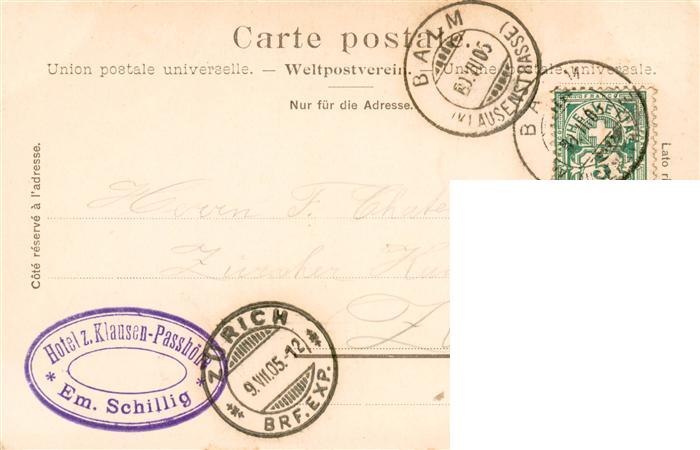 Carte postale.
Union postale universelle. — Weltpostverein. — Unione postale universale.
Nur für die Adresse.
Côté réservé à l'adresse.
Lato
BALM
(KLAUSENSTRASSE)
BALM
HELVETIA
FRANCO
5
Herrn F.
Zürcher
Hotel z. Klausen-Passhöhe
* Em. Schillig *
ZÜRICH
9.VII.05.-12
BRF. EXP.